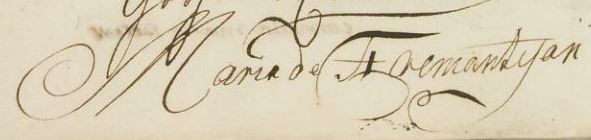 Maria de Fremantjan